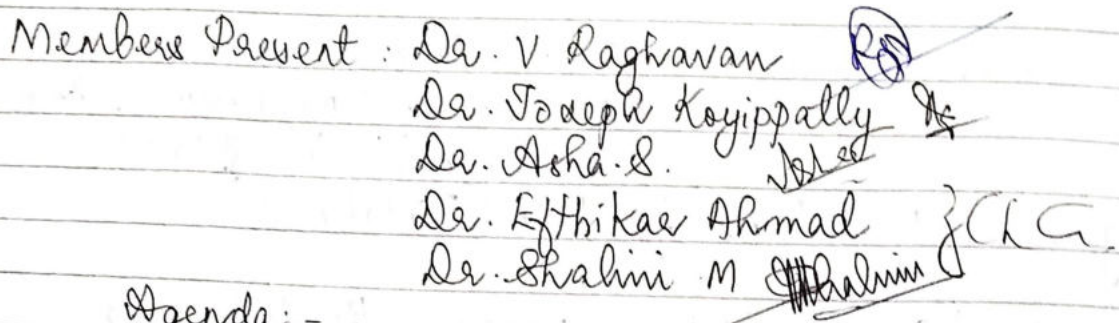 Members Present : Dr. V Raghavan
Dr. Joseph Koyippally
Dr. Asha. S.
Dr. Efthikar Ahmad } CLG
Dr. Shalini M Shalini
Agenda : -